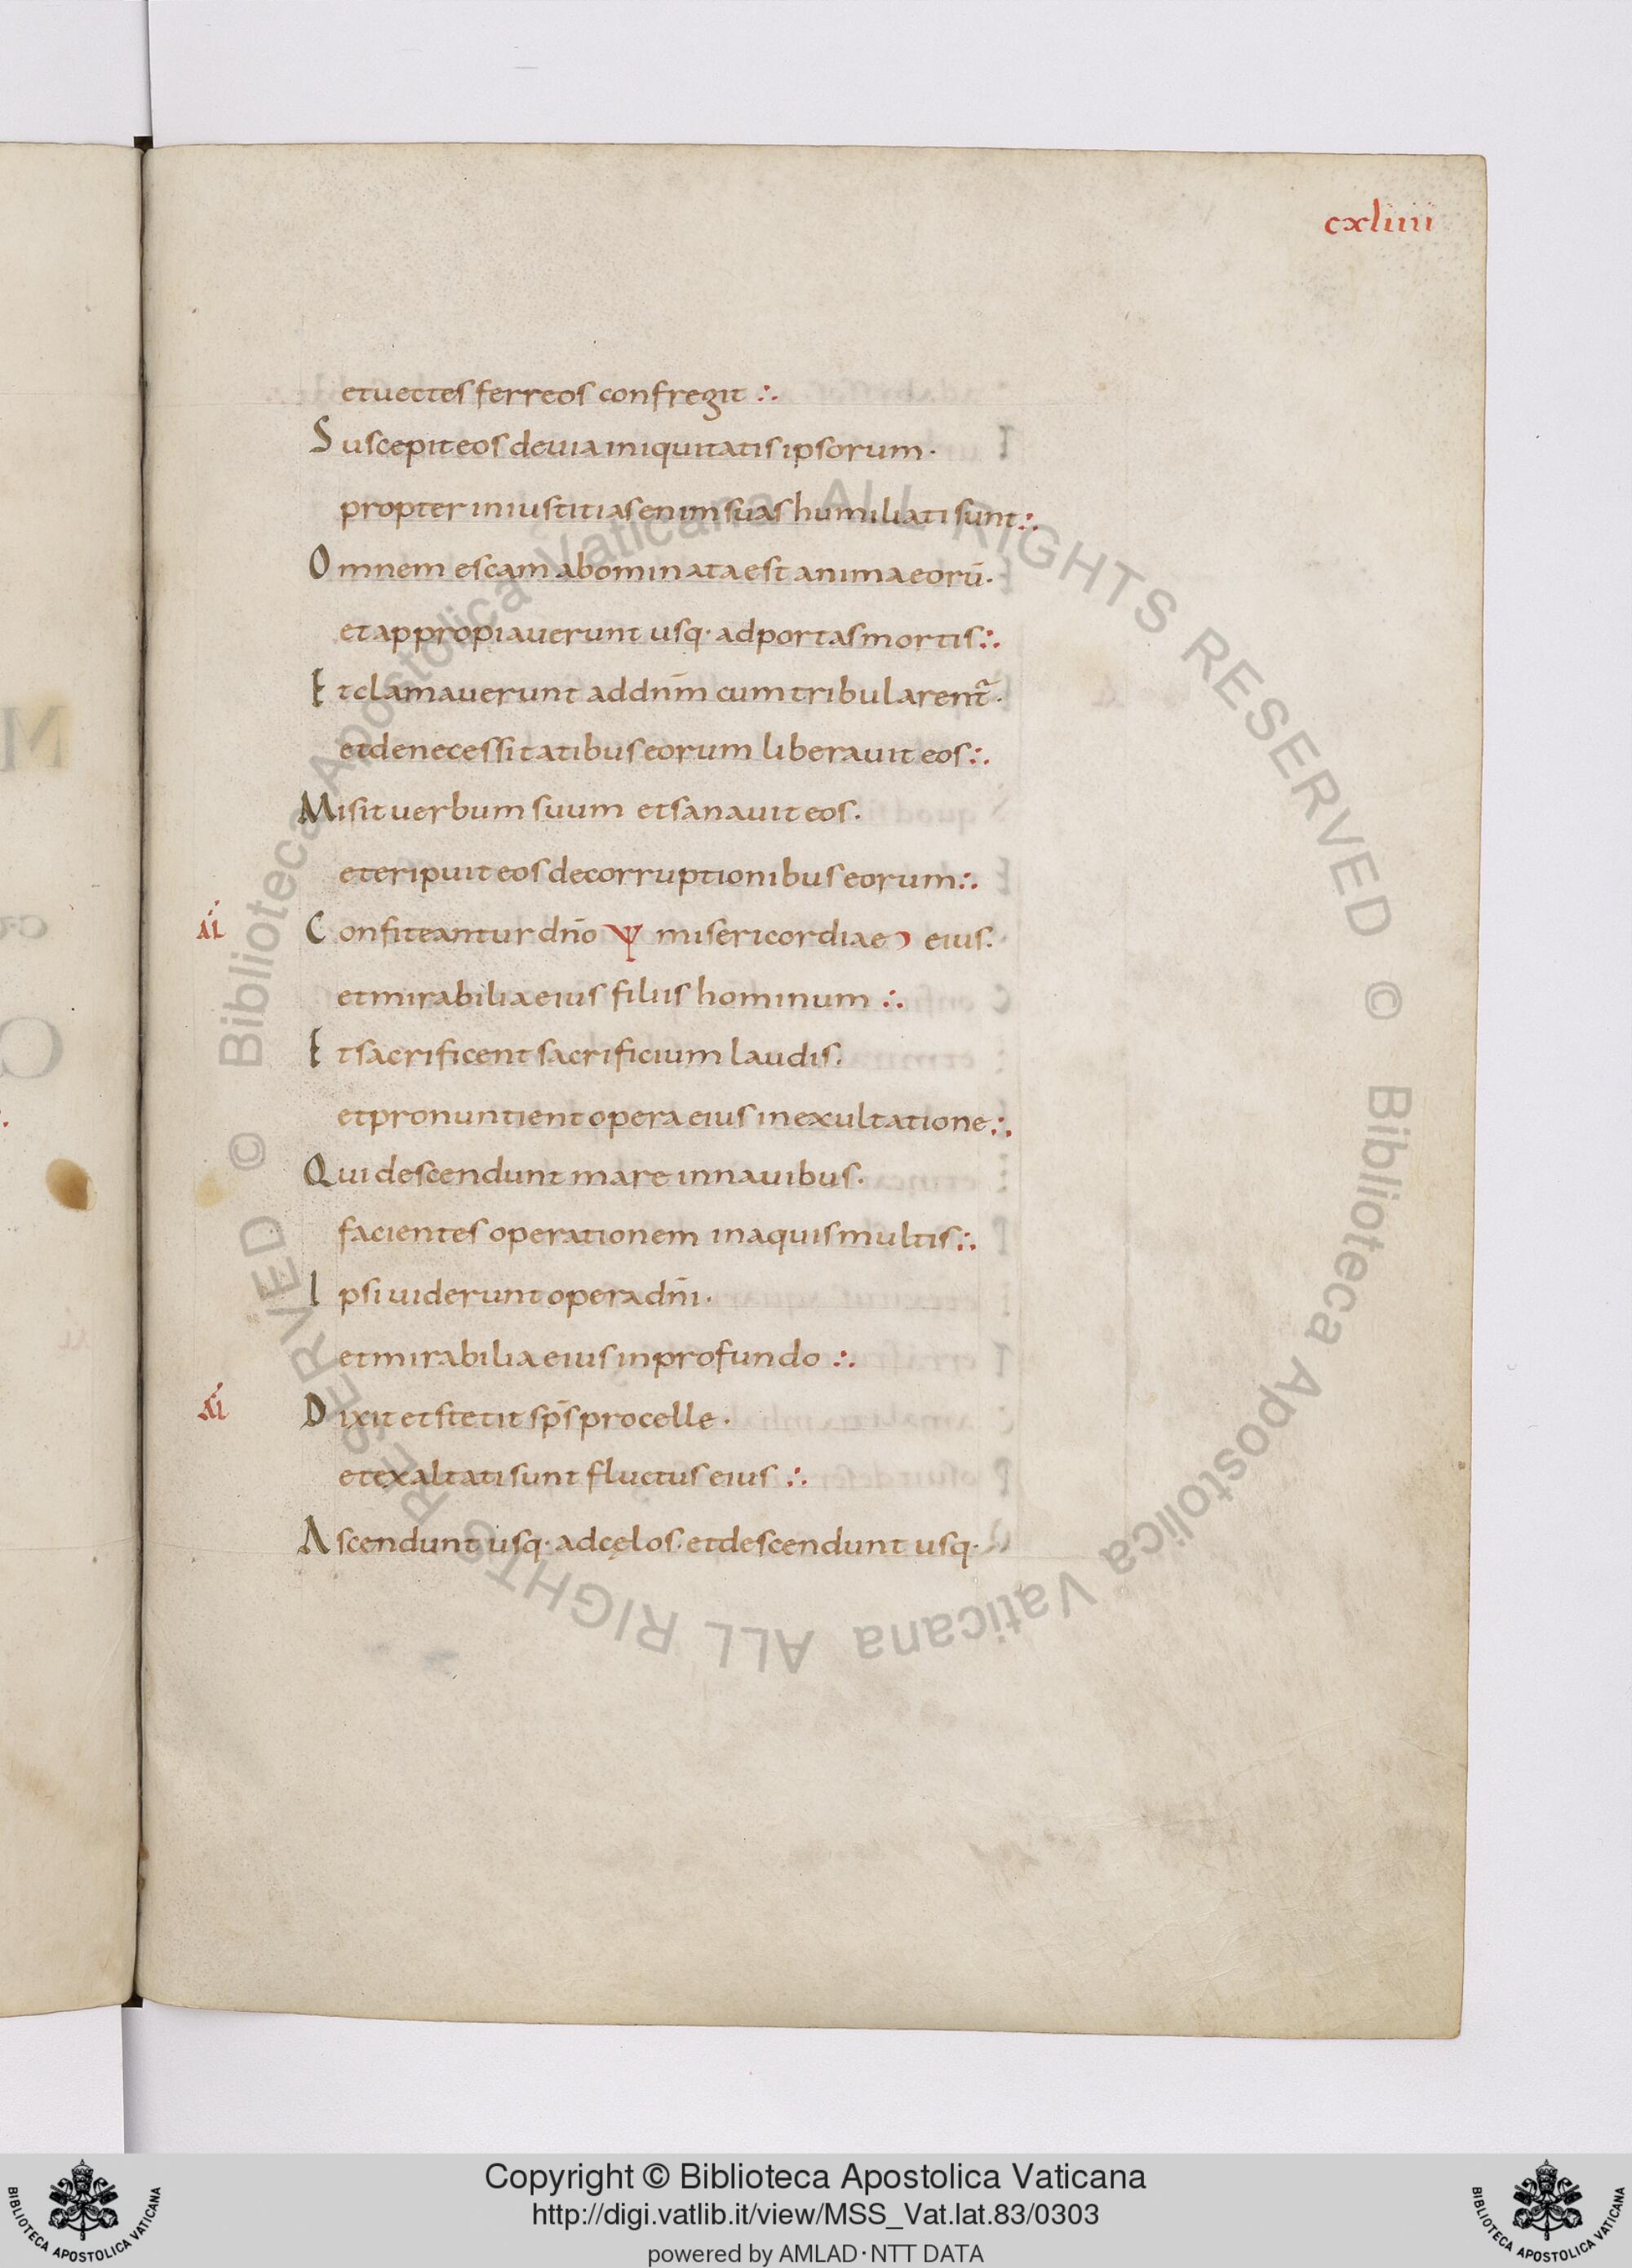 cxliiii
et uectes ferreos confregit ∴
Suscepit eos de uia iniquitatis ipsorum·
propter iniustitias enim suas humiliati sunt ∴
Omnem escam abominata est anima eorū·
et appropiauerunt usq· ad portas mortis ∴
Et clamauerunt ad dnm̄ cum tribularent᷑·
et de necessitatibus eorum liberauit eos ∴
Misit uerbum suum et sanauit eos·
et eripuit eos de corruptionibus eorum ∴
Confiteantur dnō Ψ misericordiae Ɔ eius·
et mirabilia eius filiis hominum ∴
Et sacrificent sacrificium laudis·
et pronuntient opera eius in exultatione ∴
Qui descendunt mare in nauibus·
facientes operationem in aquis multis ∴
Ipsi uiderunt opera dnī·
et mirabilia eius in profundo ∴
Dixit et stetit sps̄ procelle·
et exaltati sunt fluctus eius ∴
Ascendunt usq· ad cęlos· et descendunt usq·
© Biblioteca Apostolica Vaticana ALL RIGHTS RESERVED
© Biblioteca Apostolica Vaticana ALL RIGHTS RESERVED
Copyright © Biblioteca Apostolica Vaticana
http://digi.vatlib.it/view/MSS_Vat.lat.83/0303
powered by AMLAD·NTT DATA
BIBLIOTECA APOSTOLICA VATICANA
BIBLIOTECA APOSTOLICA VATICANA